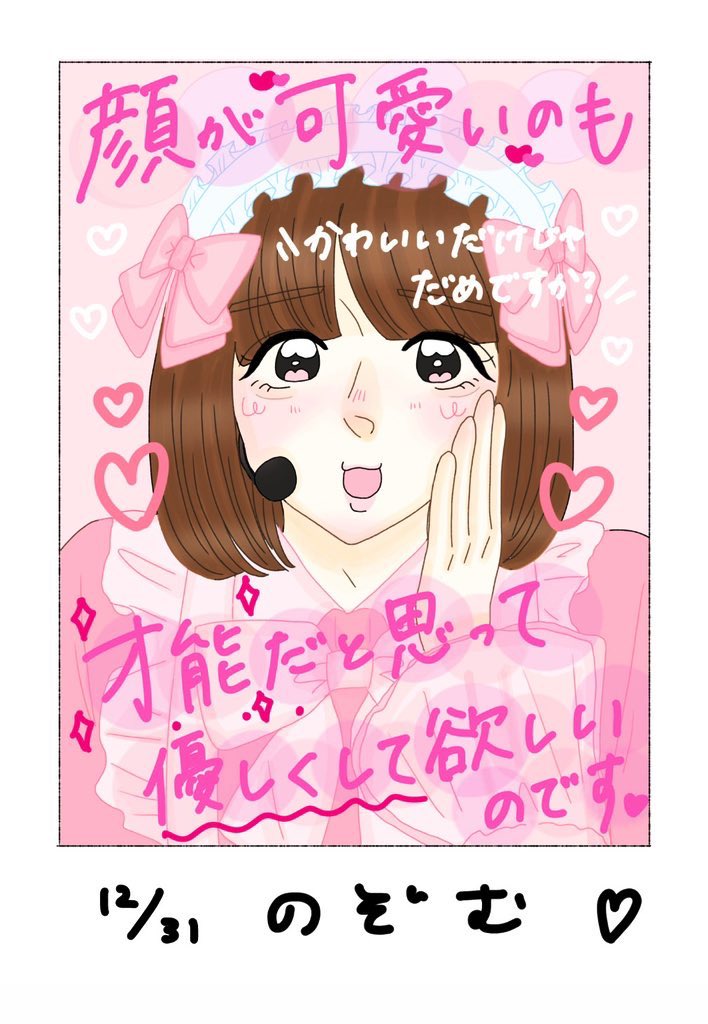 顔が可愛いのも
\\かわいいだけじゃ
だめですか?//
才能だと思って
優しくして欲しい
のです♥
12/31 のぞむ ♡